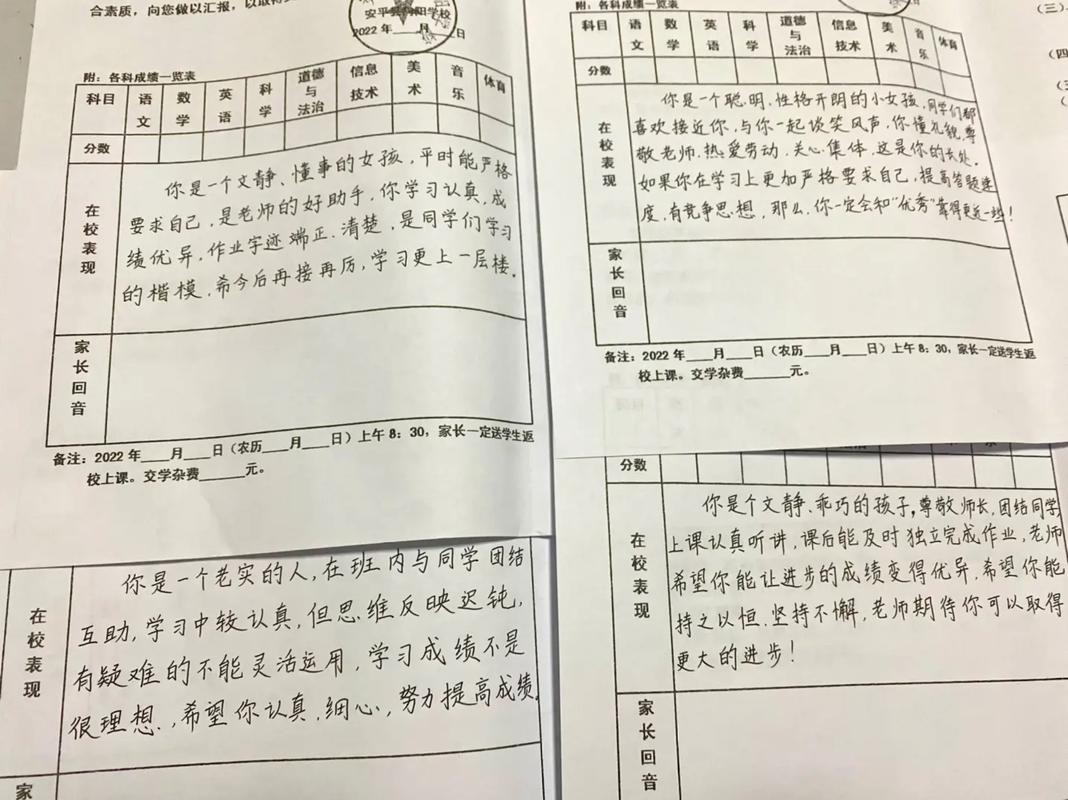 合素质，向您做以汇报，以取得
安平县
阳学校
2022 年____月____日
附：各科成绩一览表
科目 语文 数学 英语 科学 道德与法治 信息技术 美术 音乐 体育
分数
在校表现
你是一个文静、懂事的女孩，平时能严格
要求自己，是老师的好助手，你学习认真，成
绩优异，作业字迹端正、清楚，是同学们学习
的楷模，希今后再接再厉，学习更上一层楼。
家长回音
备注：2022 年____月____日（农历____月____日）上午 8：30，家长一定送学生返
校上课。交学杂费______元。
附：各科成绩一览表
科目 语文 数学 英语 科学 道德与法治 信息技术 美术 音乐 体育
分数
在校表现
你是一个聪、明、性格开朗的小女孩，同学们都
喜欢接近你，与你一起谈笑风声，你懂礼貌，尊
敬老师、热爱劳动、关心集体，这是你的长处。
如果你在学习上更加严格要求自己，提高答题速
度，有竞争思想，那么，你一定会和“优秀”靠得更近一些！
家长回音
备注：2022 年____月____日（农历____月____日）上午 8：30，家长一定送学生返
校上课。交学杂费______元。
（三）
（四
在校表现
你是一个老实的人，在班内与同学团结
互助，学习中较认真，但思维反映迟钝，
有疑难的不能灵活运用，学习成绩不是
很理想，希望你认真、细心，努力提高成绩。
家
分数
在校表现
你是个文静、乖巧的孩子，尊敬师长，团结同学，
上课认真听讲，课后能及时独立完成作业，老师
希望你能让进步的成绩变得优异，希望你能
持之以恒，坚持不懈，老师期待你可以取得
更大的进步！
家长回音